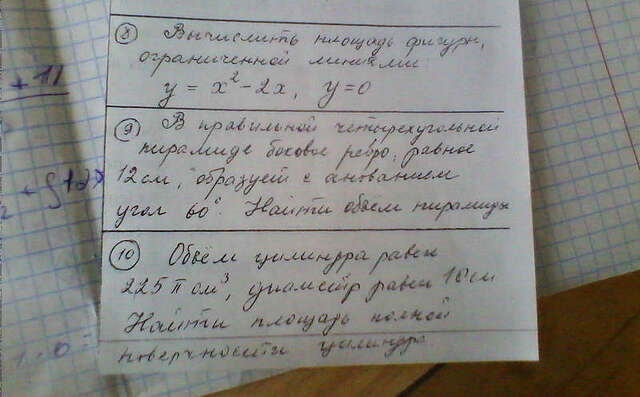 8 Вычислить площадь фигуры,
ограниченной линиями
y = x² - 2x, y=0
9 В правильной четырехугольной
пирамиде боковое ребро, равное
12 см, образует с основанием
угол 60°. Найти объем пирамиды
10 Объём цилиндра равен
225 π см³, диаметр равен 18 см
Найти площадь полной
поверхности цилиндра
+ 11